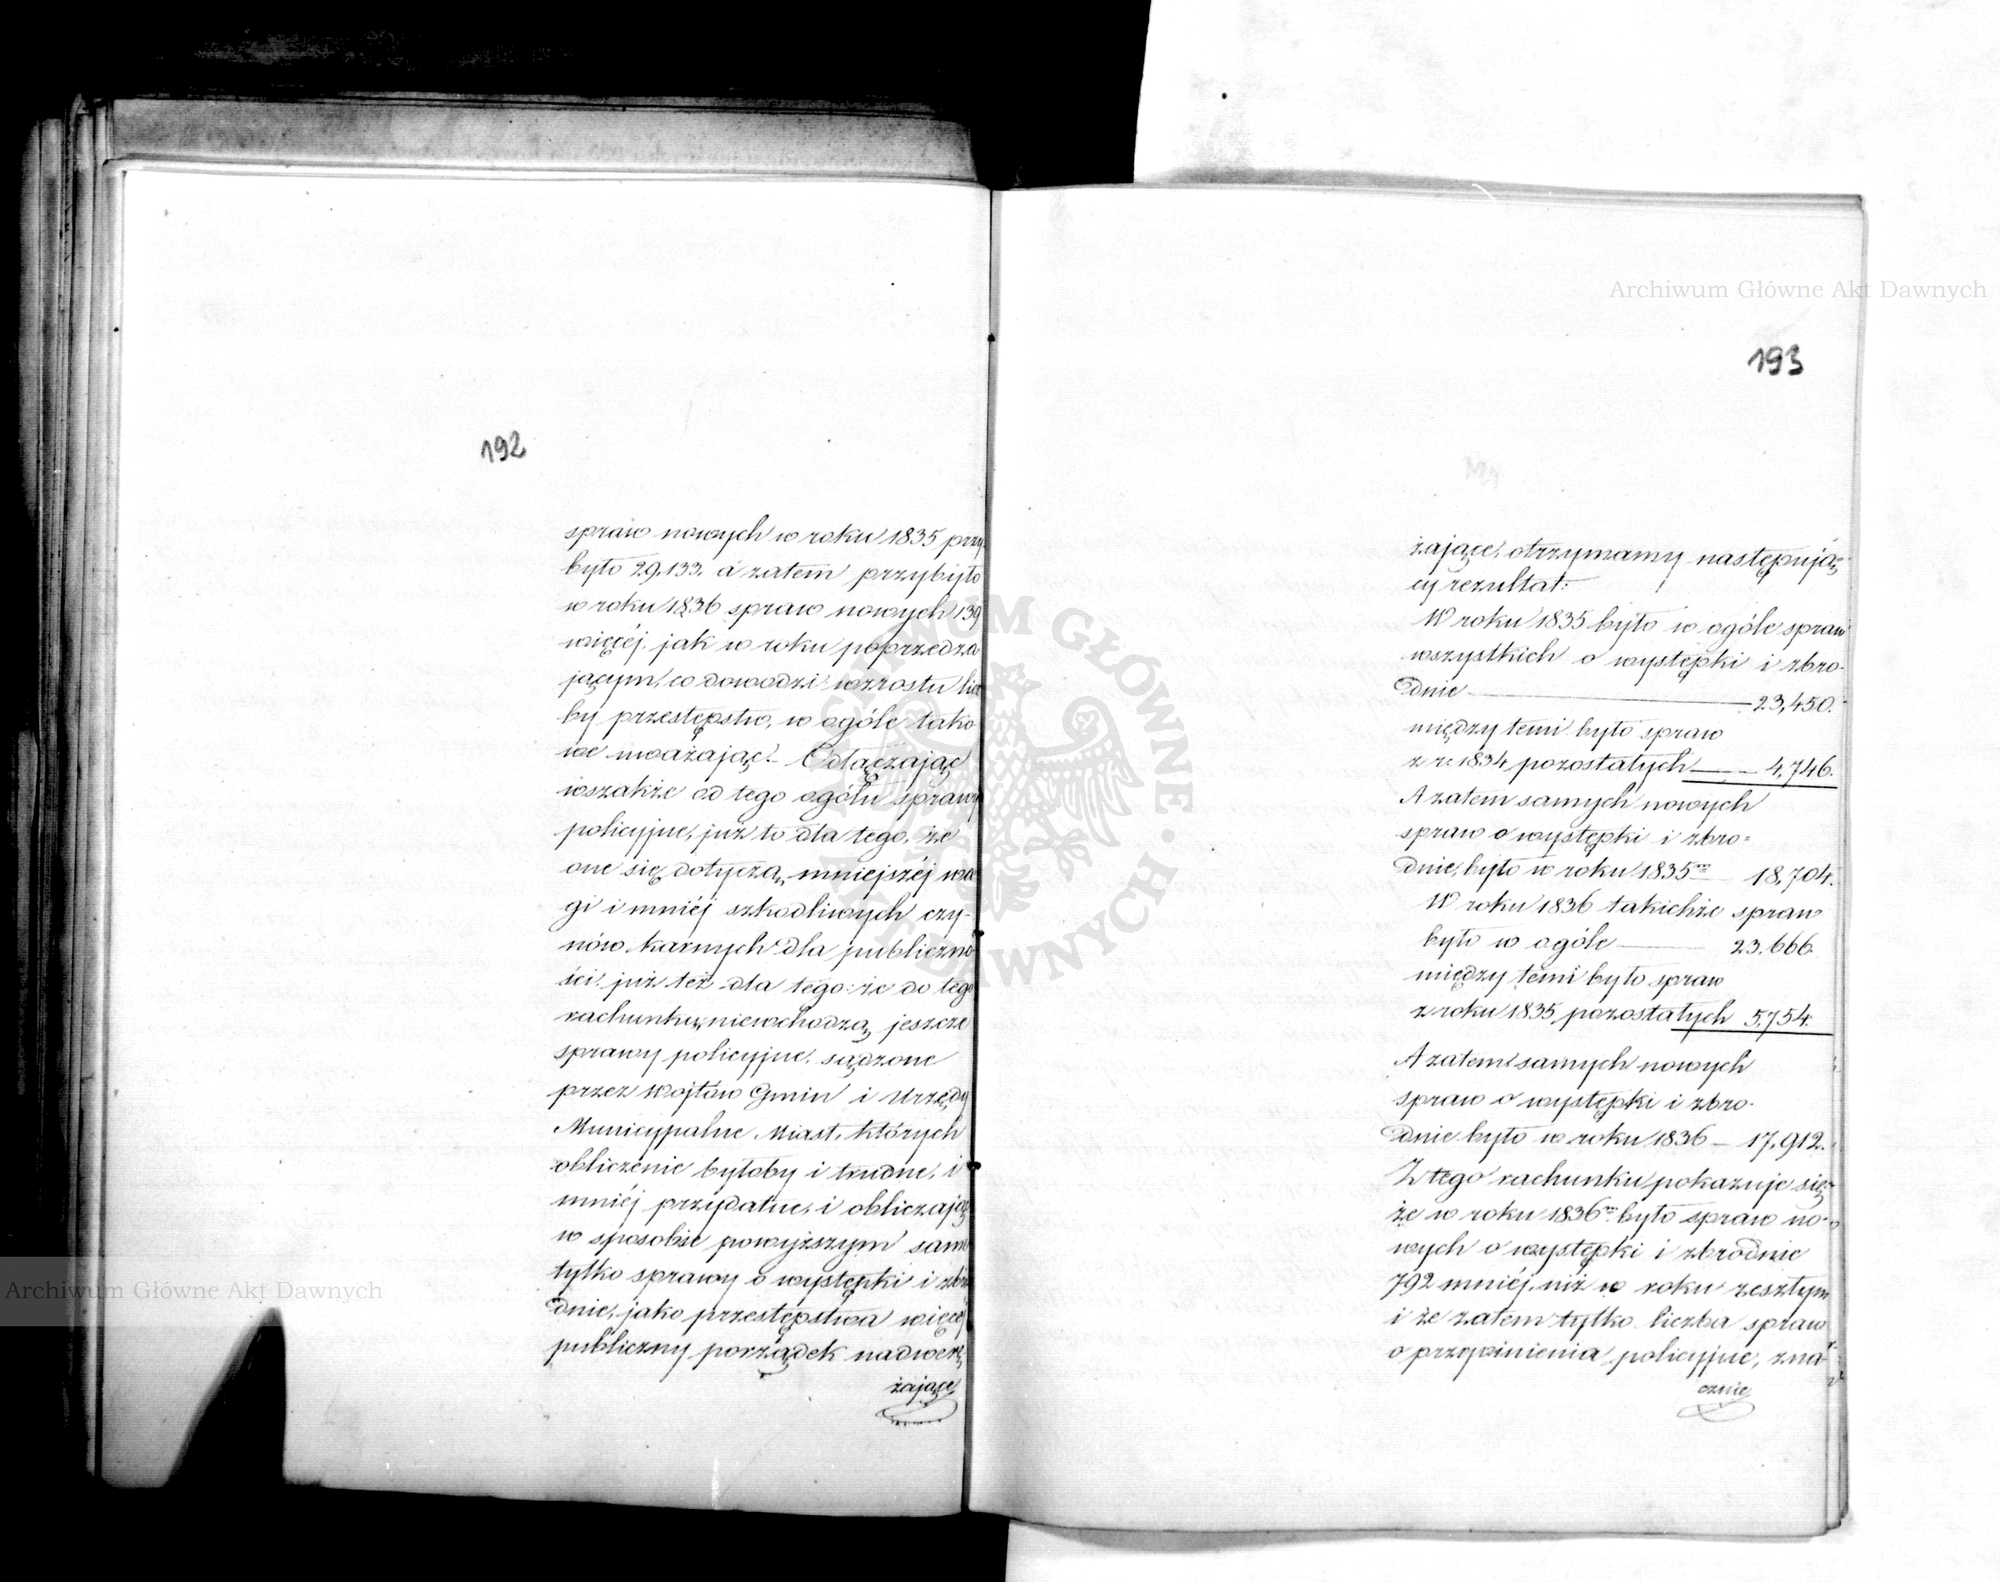 192
spraw nowych w roku 1835 przy
było 29.133. a zatem przybyło
w roku 1836 spraw nowych 139
więcéj jak w roku poprzedza
jącym, co dowodzi wzrostu licz
by przestępstw, w ogóle tako
we uważając.- Odłączając
wszakże od tego ogółu sprawy
policyjne, już to dla tego, że
one się dotyczą, mniejszéj wa
gi i mniéj szkodliwych czy-
nów karnych dla publiczno
ści, już też dla tego: że do tego
rachunku, niewchodzą, jeszcze
sprawy policyjne, sądzone
przez Wojtów Gmin i Urzędy
Municypalne Miast, których
obliczenie byłoby i trudne, i
mniéj przydatne, i obliczając
w sposobie powyższym same
tylko sprawy o występki i zbro
dnie, jako przestępstwa więcej
publiczny porządek nadwerę,
żające
Archiwum Główne Akt Dawnych
193
żające, otrzymamy następują=
cy rezultat:
W roku 1835 było w ogóle spraw
wszystkich o występki i zbro-
dnie 23,450.
między temi było spraw
z r. 1834 pozostałych 4,746.
A zatem samych nowych
spraw o występki i zbro=
dnie, było w roku 1835m 18,704.
W roku 1836 takichże spraw
było w ogóle 23,666.
między temi było spraw
z roku 1835 pozostałych 5,754.
A zatem samych nowych
spraw o występki i zbro-
dnie było w roku 1836 – 17,912.
Z tego rachunku pokazuje się,
że w roku 1836m było spraw no-
wych o występki i zbrodnie
792 mniéj, niż w roku zeszłym
i że zatem tylko liczba spraw
o przewinienia policyjne, zna-
cznie
Archiwum Główne Akt Dawnych
ARCHIWUM GŁÓWNE AKT DAWNYCH